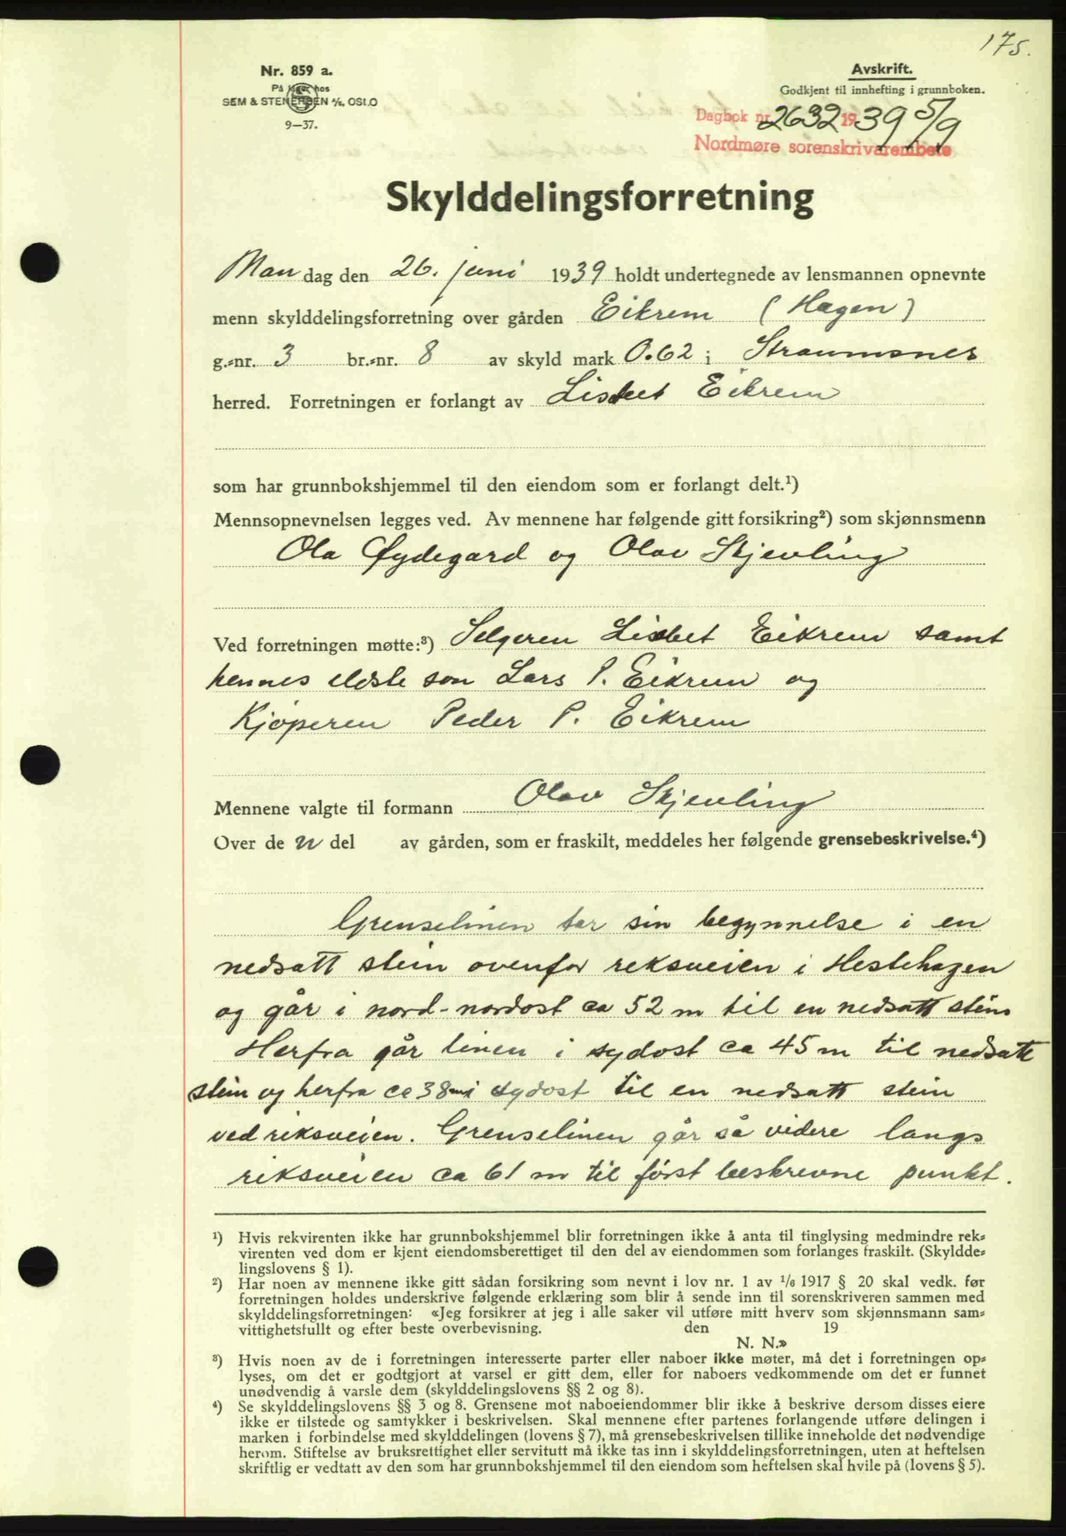 175.
Nr. 859 a.
På lager hos
SEM & STENERSEN A/S, OSLO
9-37.
Avskrift.
Godkjent til innhefting i grunnboken.
Dagbok nr. 2632 1939 5/9
Nordmøre sorenskriverembete
Skylddelingsforretning
Mandag den 26. juni 1939 holdt undertegnede av lensmannen opnevnte
menn skylddelingsforretning over gården Eikrem (Hagen)
g.-nr. 3 br.-nr. 8 av skyld mark 0.62 i Straumsnes
herred. Forretningen er forlangt av Lisbet Eikrem
som har grunnbokshjemmel til den eiendom som er forlangt delt.¹)
Mennsopnevnelsen legges ved. Av mennene har følgende gitt forsikring²) som skjønnsmenn
Ola Øydegard og Olav Skjevling
Ved forretningen møtte:³) Selgeren Lisbet Eikrem samt
hennes eldste son Lars P. Eikrem og
Kjøperen Peder P. Eikrem
Mennene valgte til formann Olav Skjevling
Over den del av gården, som er fraskilt, meddeles her følgende grensebeskrivelse.⁴)
Grenselinen tar sin begynnelse i en
nedsatt stein ovenfor reksveien i Hestehagen
og går i nord-nordost ca 52 m til en nedsatt stein
Herfra går linen i sydost ca 45 m til nedsatt
stein og herfra ca 38 m i sydost til en nedsatt stein
ved riksveien. Grenselinen går så videre langs
riksveien ca 61 m til først beskrevne punkt.
¹) Hvis rekvirenten ikke har grunnbokshjemmel blir forretningen ikke å anta til tinglysing medmindre rek-
virenten ved dom er kjent eiendomsberettiget til den del av eiendommen som forlanges fraskilt. (Skyldde-
lingslovens § 1).
²) Har noen av mennene ikke gitt sådan forsikring som nevnt i lov nr. 1 av 1/6 1917 § 20 skal vedk. før
forretningen holdes underskrive følgende erklæring som blir å sende inn til sorenskriveren sammen med
skylddelingsforretningen: «Jeg forsikrer at jeg i alle saker vil utføre mitt hverv som skjønnsmann sam-
vittighetsfullt og efter beste overbevisning. den 19
N. N.»
³) Hvis noen av de i forretningen interesserte parter eller naboer ikke møter, må det i forretningen op-
lyses, om det er godtgjort at varsel er gitt dem, eller for naboers vedkommende om det er funnet
unødvendig å varsle dem (skylddelingslovens §§ 2 og 8).
⁴) Se skylddelingslovens §§ 3 og 8. Grensene mot naboeiendommer blir ikke å beskrive dersom disses eiere
ikke er tilstede og samtykker i beskrivelsen. Skal mennene efter partenes forlangende utføre delingen i
marken i forbindelse med skylddelingen (lovens § 7), må grensebeskrivelsen tillike inneholde det nødvendige
herom. Stiftelse av bruksrettighet eller servitutt må ikke tas inn i skylddelingsforretningen, uten at heftelsen
skriftlig er vedtatt av den som har grunnbokshjemmel til den eiendom som heftelsen skal hvile på (lovens § 5).